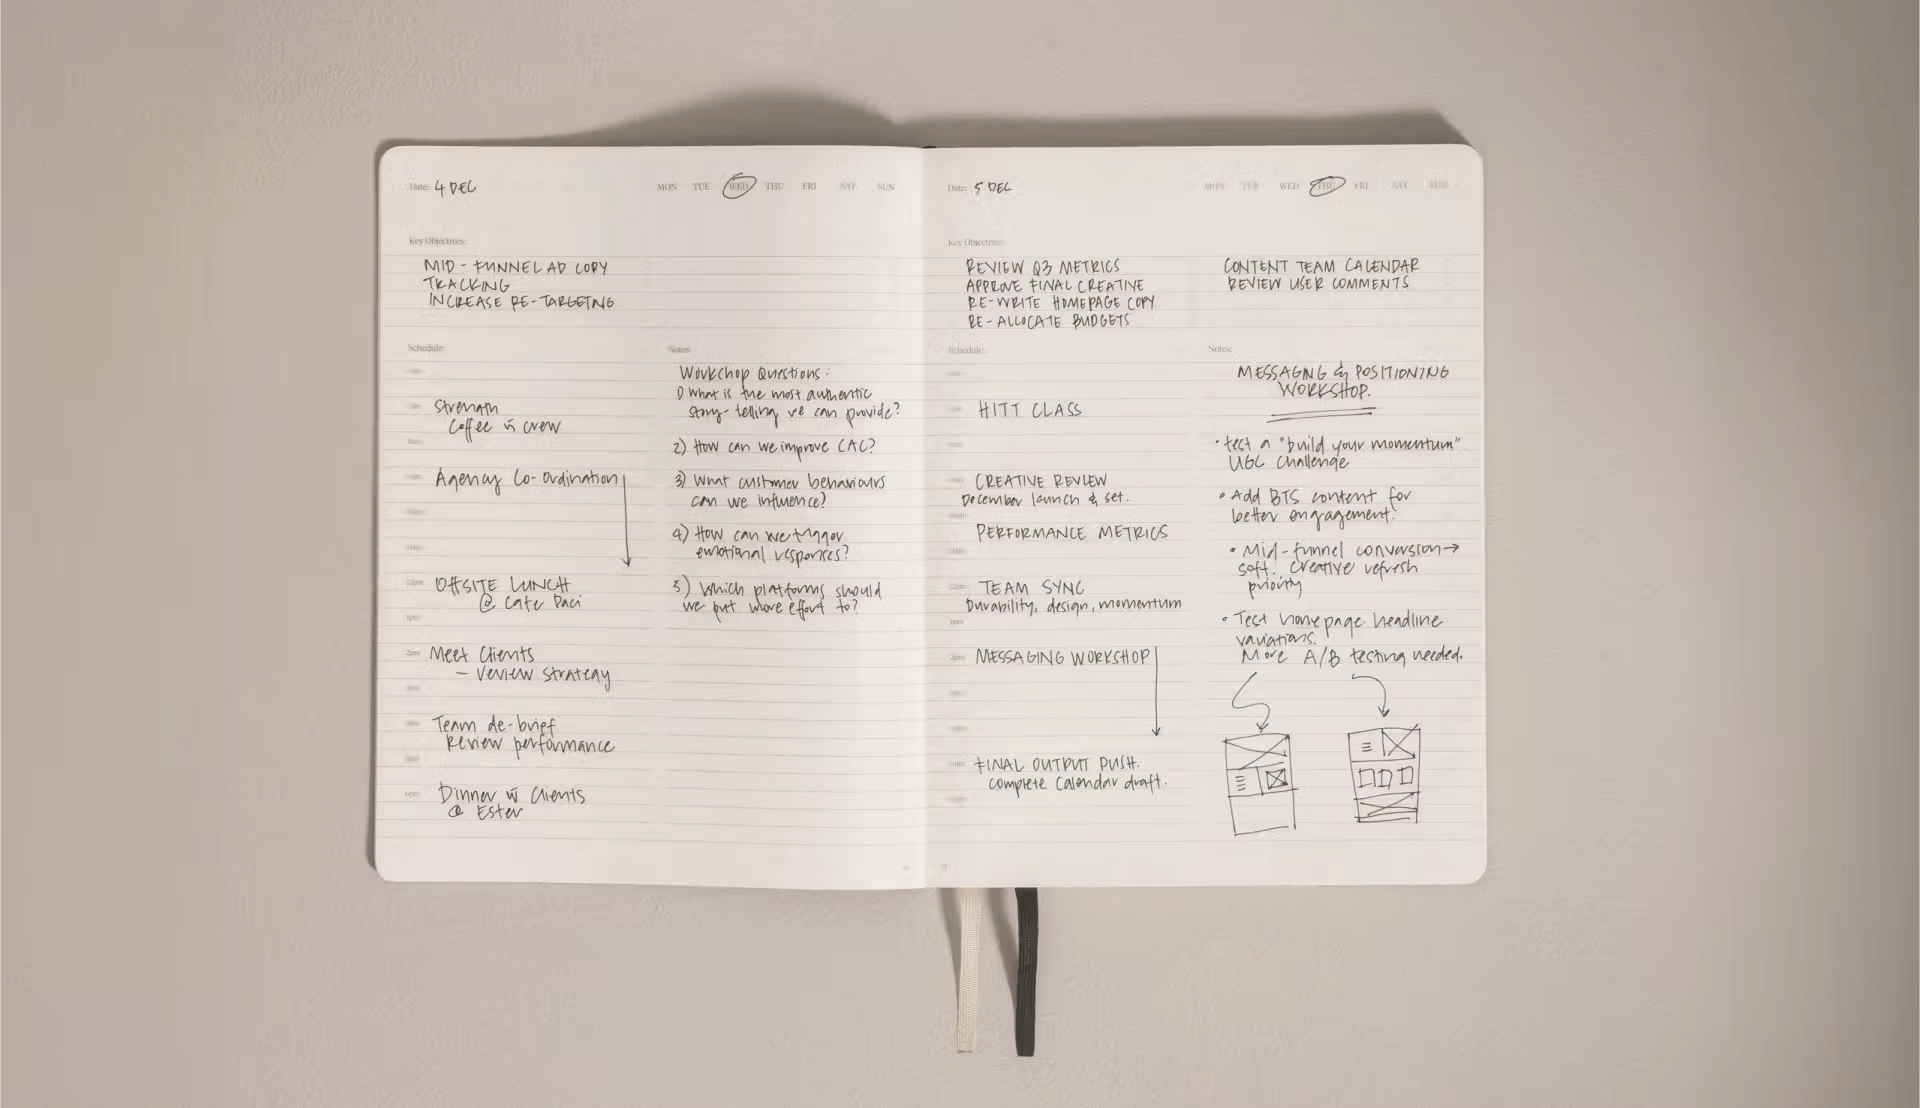 Date: 4 DEC
MON TUE WED THU FRI SAT SUN
Key Objectives:
MID-FUNNEL AD COPY
TRACKING
INCREASE RE-TARGETING
Schedule:
Strength
Coffee w crew
Agency Co-ordination
12pm OFFSITE LUNCH
@ Cafe Paci
1pm
2pm Meet Clients
- review strategy
Team de-brief
Review performance
Dinner w Clients
@ Ester
Notes:
Workshop Questions:
1) What is the most authentic
story-telling we can provide?
2) How can we improve CAC?
3) What customer behaviours
can we influence?
4) How can we trigger
emotional responses?
5) Which platforms should
we put more effort to?
Date: 5 DEC
MON TUE WED THU FRI SAT SUN
Key Objectives:
REVIEW Q3 METRICS
APPROVE FINAL CREATIVE
RE-WRITE HOMEPAGE COPY
RE-ALLOCATE BUDGETS
CONTENT TEAM CALENDAR
REVIEW USER COMMENTS
Schedule:
HITT CLASS
CREATIVE REVIEW
December launch & set.
PERFORMANCE METRICS
TEAM SYNC
Durability, design, momentum
2pm MESSAGING WORKSHOP
FINAL OUTPUT PUSH.
complete calendar draft.
Notes:
MESSAGING & POSITIONING
WORKSHOP.
• test a "build your momentum"
UGC challenge
• Add BTS content for
better engagement.
• Mid-funnel conversion →
soft. Creative refresh
priority
• Test homepage headline
variations.
More A/B testing needed.